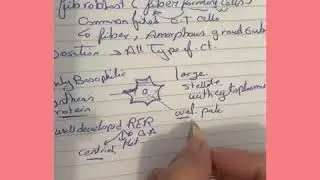 fibroblast (fiber forming cells)
Common fixed C.T cells
fiber, Amorphous ground sub
position → All Type of ct.
Basophilic
large
stellate
with cytoplasm
protein
oval pale
well developed RER
G.A
central Mit